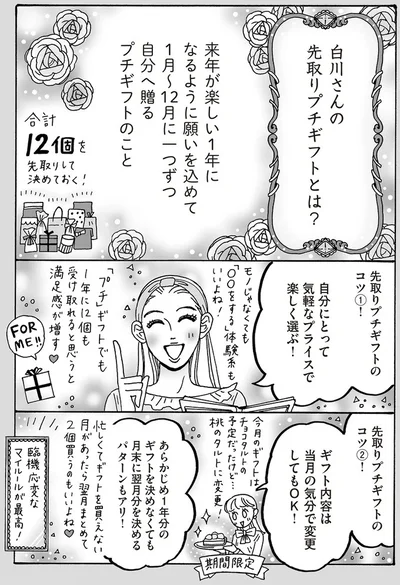 白川さんの
先取りプチギフトとは？
来年が楽しい1年に
なるように願いを込めて
1月〜12月に一つずつ
自分へ贈る
プチギフトのこと
合計
12個を
先取りして
決めておく！
先取りプチギフトの
コツ①！
自分にとって
気軽なプライスで
楽しく選ぶ！
モノじゃなくても
「〇〇をする」体験系も
いいよね！
「プチ」ギフトでも
1年に12個も
受け取れると思うと
満足感が増す♡
FOR
ME!!
先取りプチギフトの
コツ②！
ギフト内容は
当月の気分で変更
してもOK！
今月のギフトは
チョコタルトの
予定だったけど…
桃のタルトに変更！
期間限定
あらかじめ1年分の
ギフトを決めなくても
月末に翌月分を決める
パターンもアリ！
忙しくてギフトを買えない
月があったら翌月まとめて
2個買うのもいいよね♡
臨機応変な
マイルールが最高！